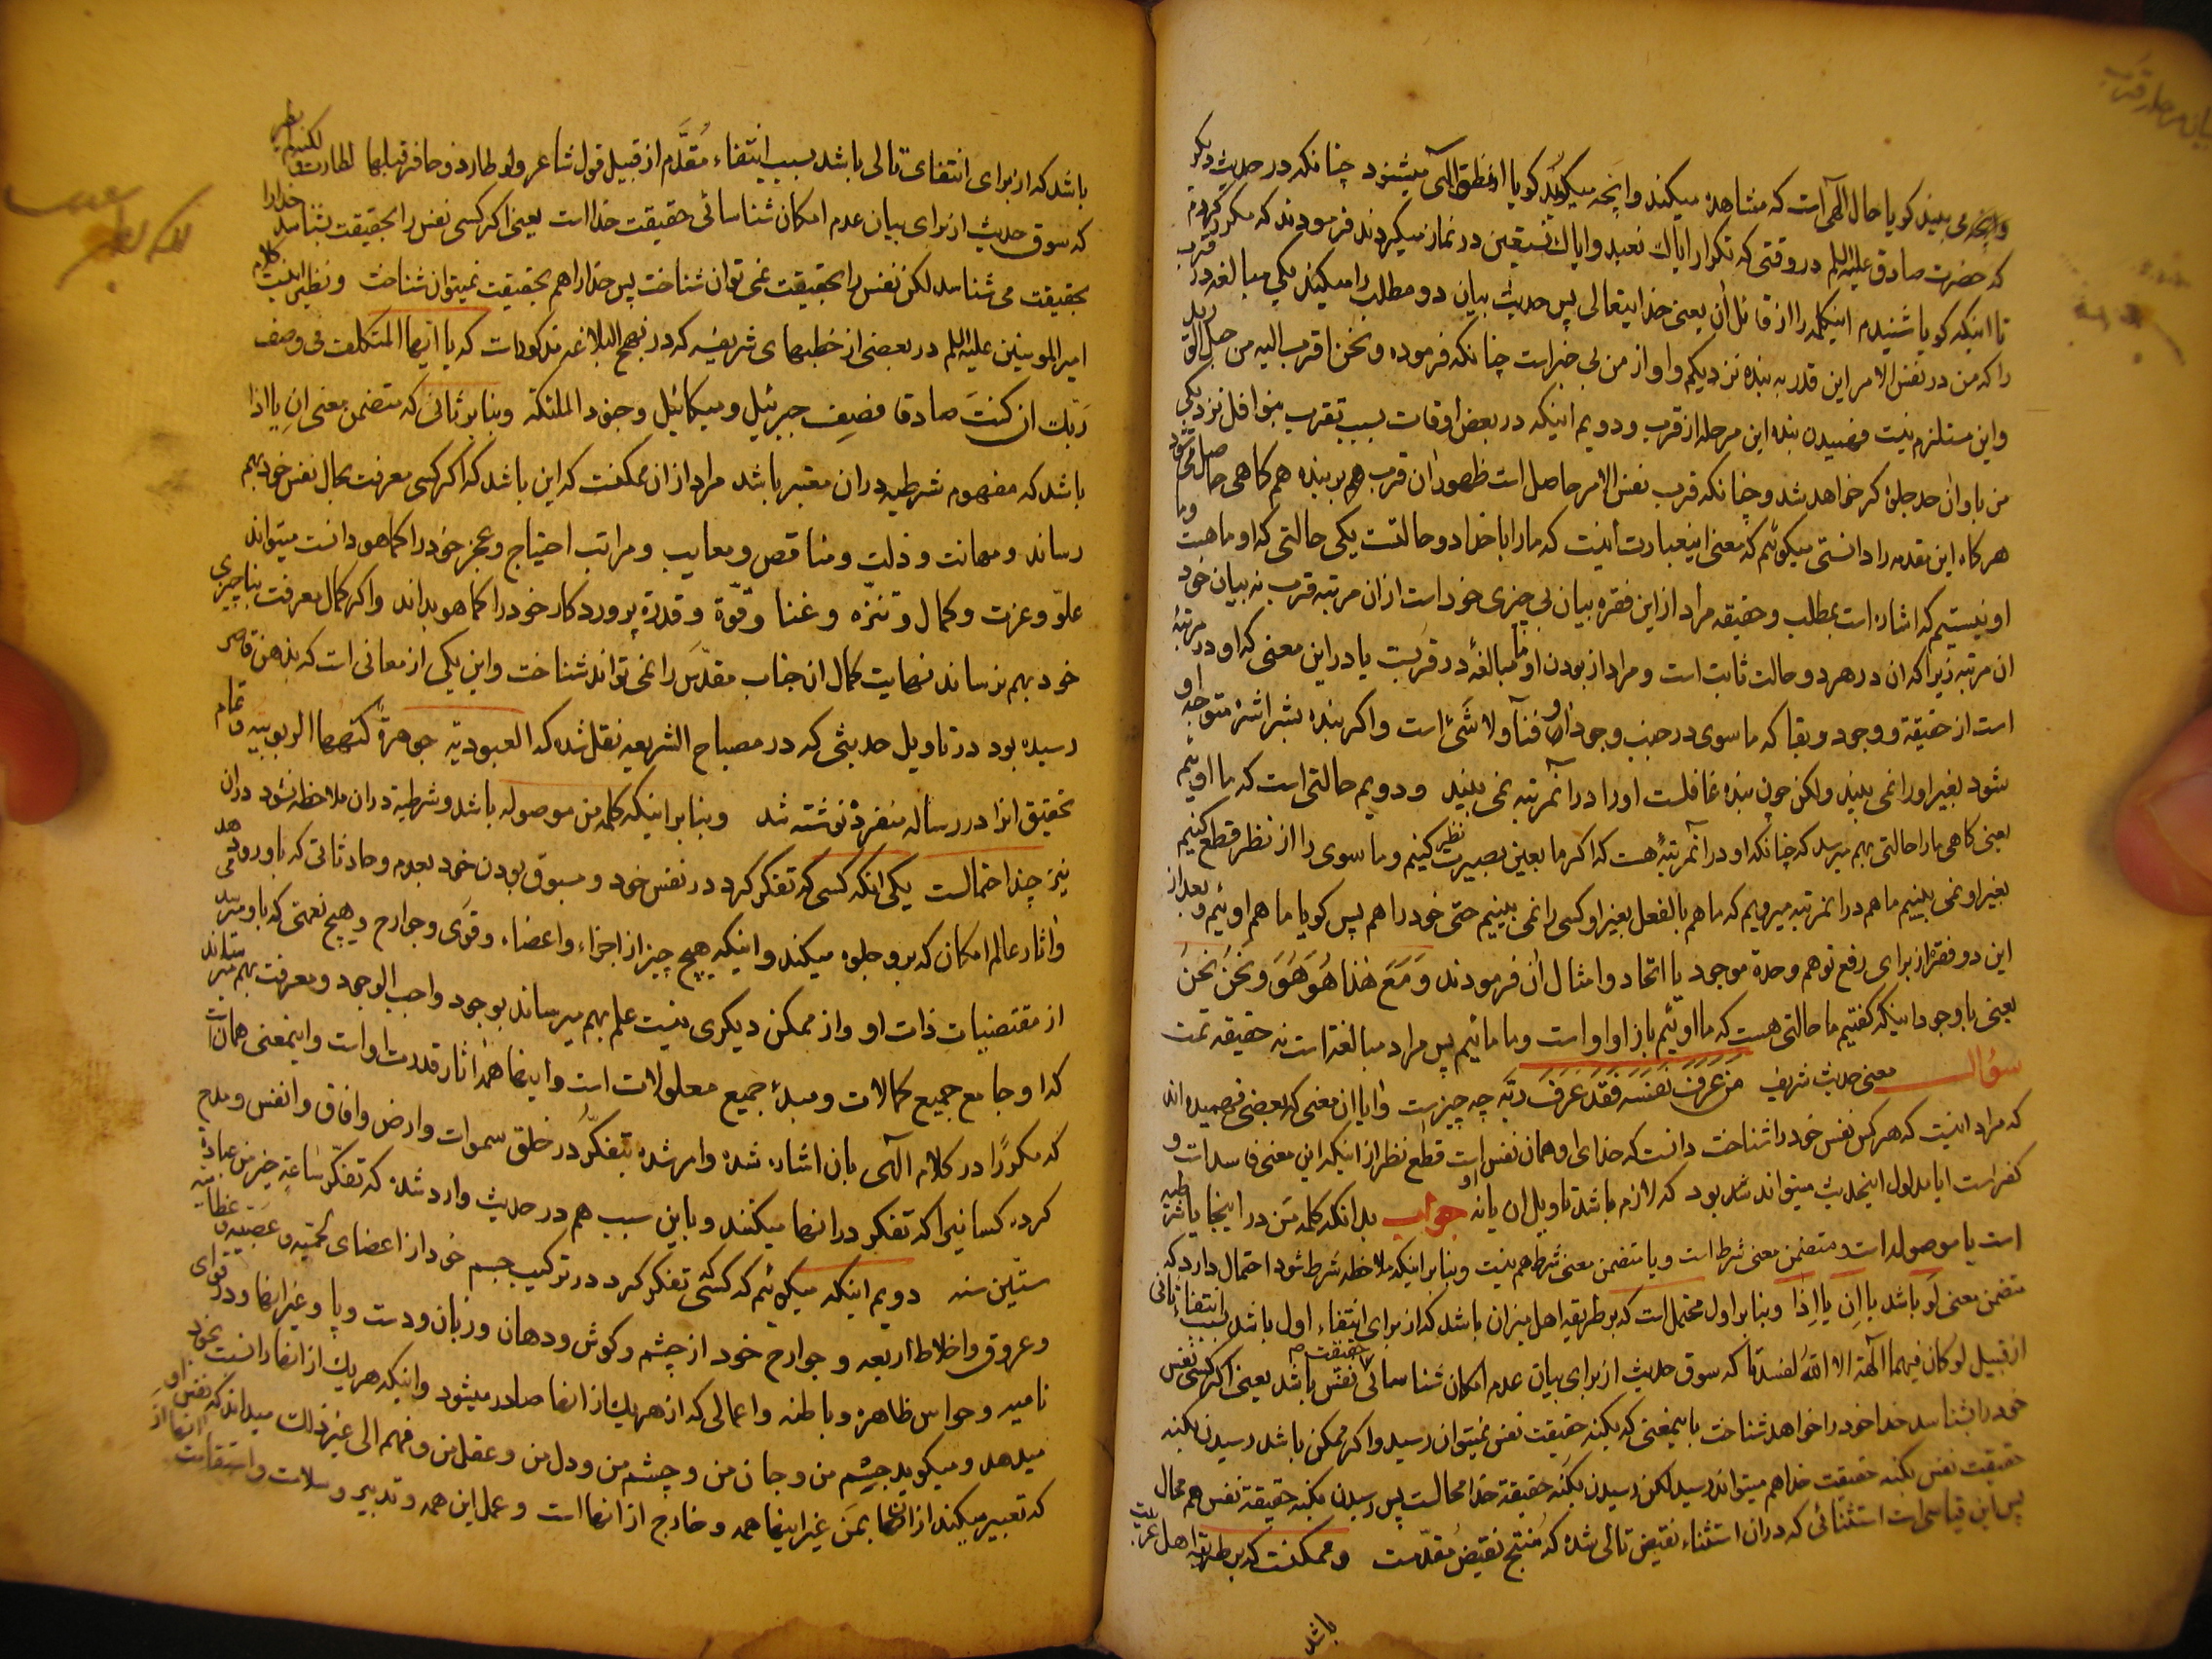 وآنچه می بیند کویا حال الهی است که مشاهده میکند وآنچه میکوید کویا از نطق الهی میشنود چنانکه در حدیث دیکر
که حضرت صادق علیه السلم در وقتی که تکرار ایاك نعبد وایاك نستعین در نماز میکردند فرمودند که مکرر کردم
تا اینکه کویا شنیدم اینکلمه را از قائل آن یعنی خدایتعالی پس حدیث بیان دو مطلب را میکند یکی مبالغه در قرب
را که من در نفس الامر این قدر به بنده نزدیکم واو از من بی خبر است چنانکه فرموده ونحن اقرب الیه من حبل الورید
واین مستلزم نیست فهمیدن بنده این مرحله از قرب ودویم اینکه در بعض اوقات بسبب تقرب بنوافل نزدیکی
من باو ان حد جلوه کر خواهد شد وچنانکه قرب نفس الامر حاصل است ظهور ان قرب هم بر بنده هم کاهی حاصل میشود
هرکاه این مقدمه را دانستی میکوئیم که معنی اینعبارت اینست که ما را با خدا دو حالتست یکی حالتی که او ماهست وما
او نیستیم که اشاره است بمطلب وحقیقه مراد از این فقره بیان بی چیزی خود است از ان مرتبه قرب نه بیان خود
ان مرتبه زیرا که ان در هر دو حالت ثابت است ومراد از بودن او ما مبالغهٔ در قربست یا در این معنی که او در مرتبهٔ
است از حقیقة ووجود وبقا که ما سوی در جنب وجود او فنا ولا شَیْ است واکر بنده بشراشره متوجه او
شود بغیر او را نمی بیند ولکن چون بنده غافلست او را در آنمرتبه نمی بیند ودویم حالتی است که ما اوئیم
یعنی کاهی ما را حالتی بهم میرسد که چنانکه او در آنمرتبهٔ هست که اکر ما بعین بصیرت نظر کنیم وما سوی را از نظر قطع کنیم
بغیر او نمی بینیم ما هم در انمرتبه میرویم که ما هم بالفعل بغیر او کسی را نمی بینیم حتی خود را هم پس کویا ما هم اوئیم وبعد از
این دو فقره از برای رفع توهم وحدة موجود یا اتحاد وامثال آن فرمودند وَمَعَ هٰذا هُوَ هُوَ ونَحْنُ نَحْنُ
یعنی با وجود اینکه کفتیم ما حالتی هست که ما اوئیم باز او او است وما مائیم پس مراد مبالغه است نه حقیقه تمت
سؤال معنی حدیث شریف مَنْ عَرَفَ نَفْسَه فَقَدْ عَرَفَ رَبَّه چه چیزست وآیا ان معنی که بعضی فهمیده اند
که مراد اینست که هر کس نفس خود را شناخت دانست که خدای او همان نفس است قطع نظر از اینکه این معنی فاسد است و
کفر است ایا مدلول اینحدیث میتواند شد بود که لازم باشد تاویل ان یا نه جواب بدانکه کلمه مَن در اینجا یا شرطیه
است یا موصوله است ومتضمن معنی شرط است ویا متضمن معنی شرط هم نیست وبنابر اینکه ملاحظه شرط شود احتمال دارد که
متضمن معنی لَو باشد یا اِن یا اِذا وبنابر اول محتمل است که بر طریقه اهل میزان باشد که از برای انتفاء اول باشد بسبب انتفاء ثانی
از قبیل لو کان فیهما آلهة الا اللّٰه لفسدتا که سوق حدیث از برای بیان عدم امکان شناسائی حقیقت نفس باشد یعنی اکر کسی نفس
خود را بشناسد خدا خود را خواهد شناخت باینمعنی که بکنه حقیقت نفس نمیتوان رسید واکر ممکن باشد رسیدن بکنه
حقیقت نفس بکنه حقیقت خدا هم میتواند رسید لکن رسیدن بکنه حقیقة خدا محالست پس رسیدن بکنه حقیقة نفس هم محال
پس این قیاسی است استثنائی که در ان استثناء نقیض تالی شده که مُنتج نقیض مقدمست وممکنست که بر طریقه اهل عربیت
باشد
باشد که از برای انتفای تالی باشد بسبب انتفاء مُقدَّم از قبیل قول شاعر ولو طار ذو حافر قبلها لطارت ولکنه لم یطر
که سوق حدیث از برای بیان عدم امکان شناسائی حقیقت خدا است یعنی اکر کسی نفس را بحقیقت بشناسد خدا را
بحقیقت می شناسد لکن نفس را بحقیقت نمی توان شناخت پس خدا را هم بحقیقت نمیتوان شناخت ونظیر اینست کلام
امیر المومنین علیه السلم در بعضی از خطبهای شریفه که در نهج البلاغه مذکور است که یا ایها المتکلف فی وصف
رَبّك ان کنتَ صادقا فصِف جبرئیل ومیکائیل وجنود الملئکة وبنابر ثانی که متضمن معنی اِن یا اذا
باشد که مفهوم شرطیه در ان معتبر باشد مراد از ان ممکنست که این باشد که اکر کسی معرفت بحال نفس خود بهم
رساند ومهانت وذلت ومناقص ومعایب ومراتب احتیاج وعجز خود را کما هو دانست میتواند
علوّ وعزت وکمال وتنزّه وغنا وقوّة وقدرة پروردکار خود را کما هو بداند واکر کمال معرفت بناچیزی
خود بهم نرساند نهایت کمال ان جناب مقدّس را نمی تواند شناخت واین یکی از معانی است که بذهن قاصر
رسیده بود در تاویل حدیثی که در مصباح الشریعه نقل شده که العبودیة جوهرةٌ کنهها الربوبیّة وتمام
تحقیق انرا در رساله منفردة نوشته شد وبنابر اینکه کلمه من موصوله باشد وشرطیة در ان ملاحظه نشود در ان
نیز چند احتمالست یکی انکه کسی که تفکر کرد در نفس خود ومسبوق بودن خود بعدم وحادثاتی که باو رو می دهد
وآثار عالم امکان که بر او جلوه میکند واینکه هیچ چیز از اجزاء واعضاء وقوَی وجوارح وهیچ نعمتی که باو میرسد
از مقتضیات ذات او واز ممکن دیکری نیست علم بهم میرساند بوجود واجب الوجود ومعرفت بهم میرساند
که او جامع جمیع کمالات ومبدأ جمیع معلولات است واینها همهٔ آثار قدرت او است واینمعنی همان است
که مکررًا در کلام آلهی بان اشاره شده وامر شده بتفکّر در خلق سموات وارض وافاق وانفس ومدح
کرده کسانیرا که تفکر در انها میکنند وباین سبب هم در حدیث وارد شده که تفکّر ساعةٍ خیر من عبادة
ستّین سنه دویم اینکه میکوئیم که کسی که تفکر کرد در ترکیب جسم خود از اعضای لحمیّه وعَصَبیّه وعظامیّه
وعروق واخلاط اربعه وجوارح خود از چشم وکوش ودهان وزبان ودست وپا وغیر انها ودر قوای
نامیه وحواس ظاهره وباطنه واعمالی که از هر یك از انها صادر میشود واینکه هریك از انها را نسبت بخود
میدهد ومیکوید جسم من وجان من وچشم من ودل من وعقل من وفهم الی غیر ذلك میداند که نفس او
که تعبیر میکند از انها بمَن غیر اینها همه وخارج از انها است وعمل این همه وتدبیر وسلامت واستقامت انها از